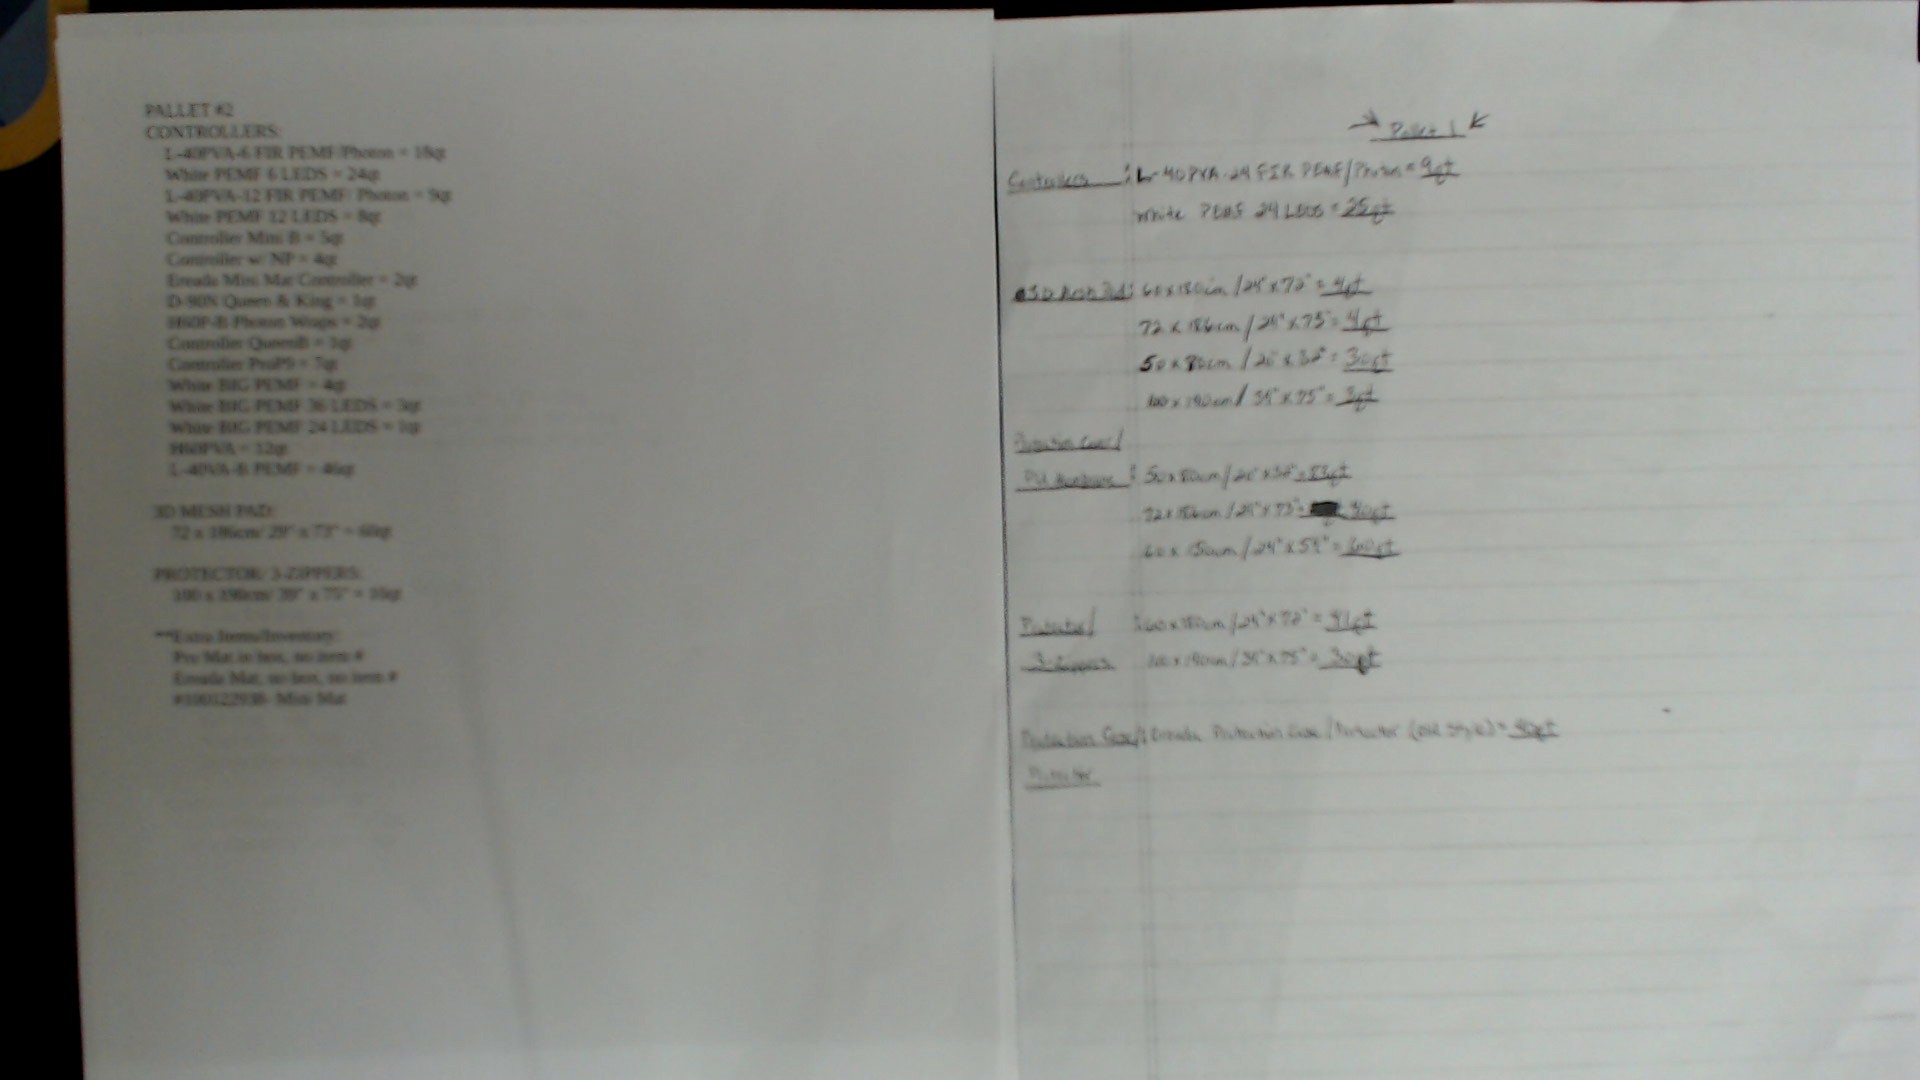 PALLET #2
CONTROLLERS:
L-40PVA-6 FIR PEMF/Photon = 18qt
White PEMF 6 LEDS = 24qt
L-40PVA-12 FIR PEMF/ Photon = 9qt
White PEMF 12 LEDS = 8qt
Controller Mini B = 5qt
Controller w/ NP = 4qt
Ereada Mini Mat Controller = 2qt
D-90N Queen & King = 1qt
H60P-B Photon Wraps = 2qt
Controller QueenB =
Controller ProP9 = 7qt
White BIG PEMF = 4qt
White BIG PEMF 36 LEDS = 3qt
White BIG PEMF 24 LEDS = 1qt
H60PVA = 12qt
L-40VA-B PEMF =
3D MESH PAD:
72 x 186cm/ 29" x 73" =
PROTECTOR/ 3-ZIPPERS:
100 x 190cm/ 39" x 75" =
**Extra Items/Inventory:
Pro Mat in box, no item #
Ereada Mat, no box, no item #
Mini Mat
Pallet 1
Controllers : L-40PVA-24 FIR PEMF/Photon = 9qt
White PEMF 24 LEDS = 25qt
3D Mesh Pad: 60x180cm /24"x72" = 4qt
72 x 186cm / 29" x 75" = 4qt
50 x 80cm / 20" x 32" = 30qt
100 x 190cm / 39" x 75" = 3qt
Protection Case/
PU : 50x80cm/20"x32" =
72x186cm /29"x73" = 40qt
60 x 150cm/24"x59" = 60qt
Protector/ : 60x180cm /24"x72" = 41qt
3-Zippers 100x190cm/39"x75" = 30qt
Protection Case/: Ereada Protection Case/Protector (old style) =
Protector